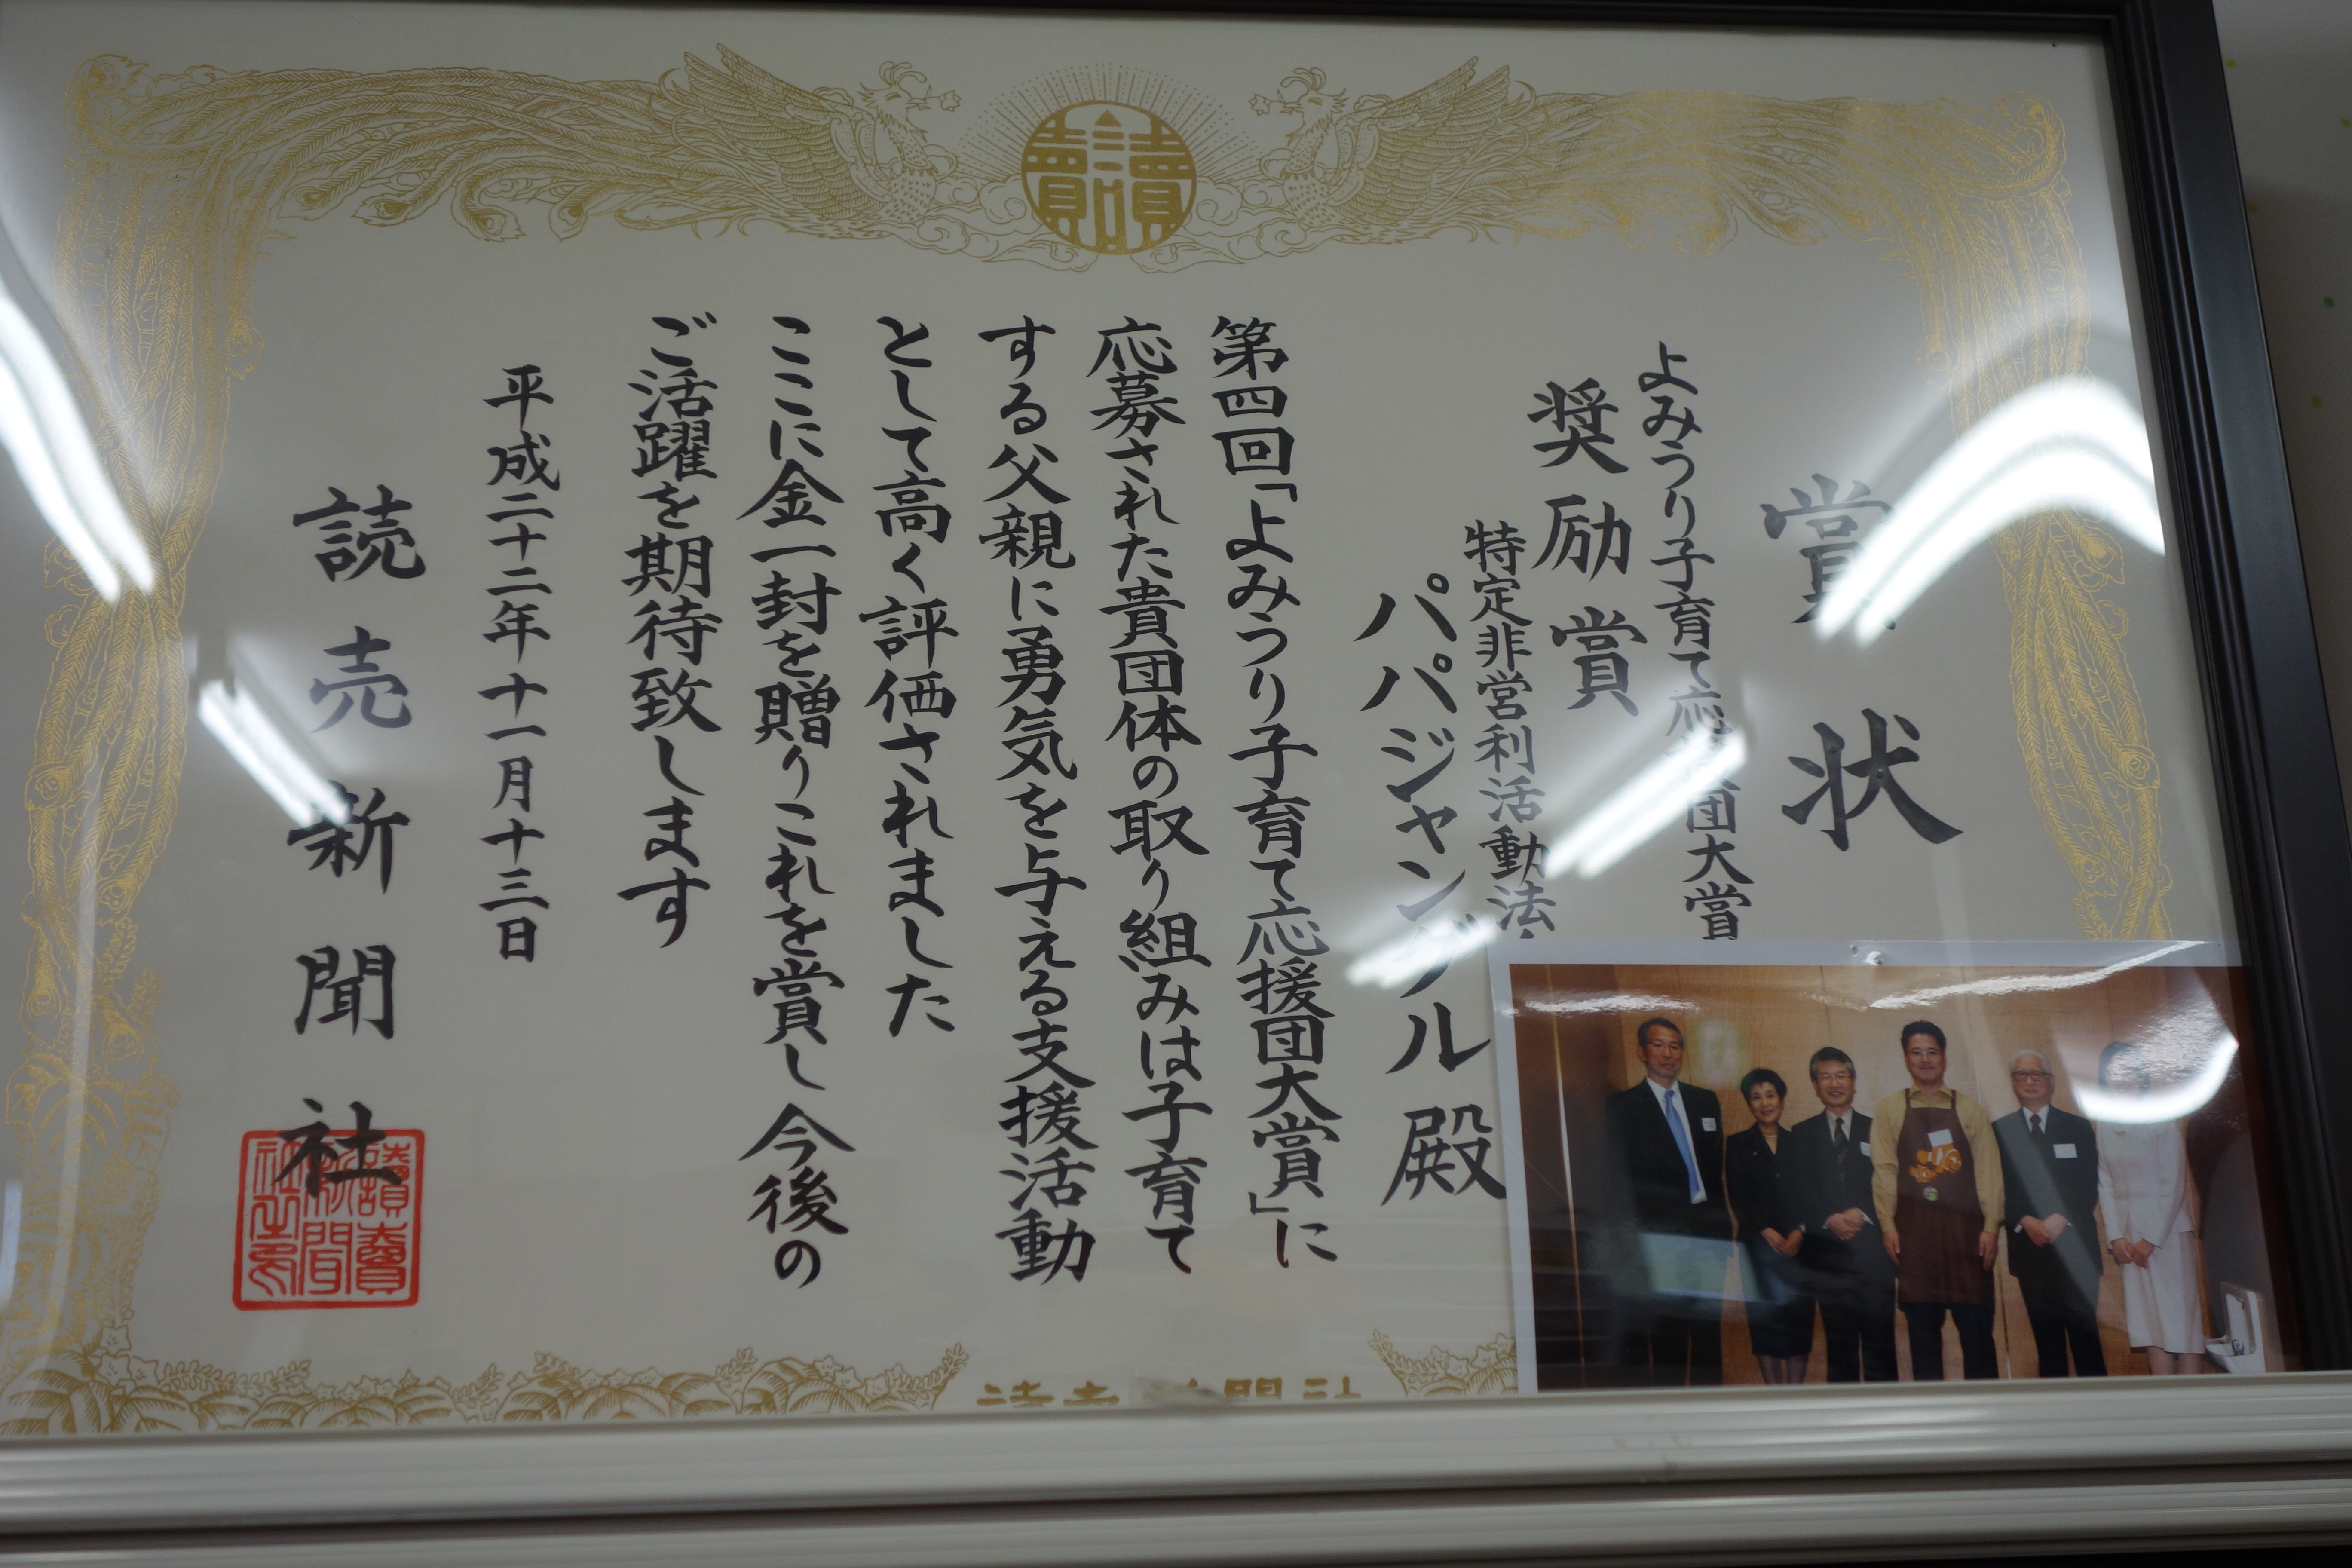 讀賣
賞状
よみうり子育て応援団大賞
奨励賞
特定非営利活動法
パパジャングル殿
第四回「よみうり子育て応援団大賞」に
応募された貴団体の取り組みは子育て
する父親に勇気を与える支援活動
として高く評価されました
ここに金一封を贈りこれを賞し今後の
ご活躍を期待致します
平成二十二年十一月十三日
読売新聞社